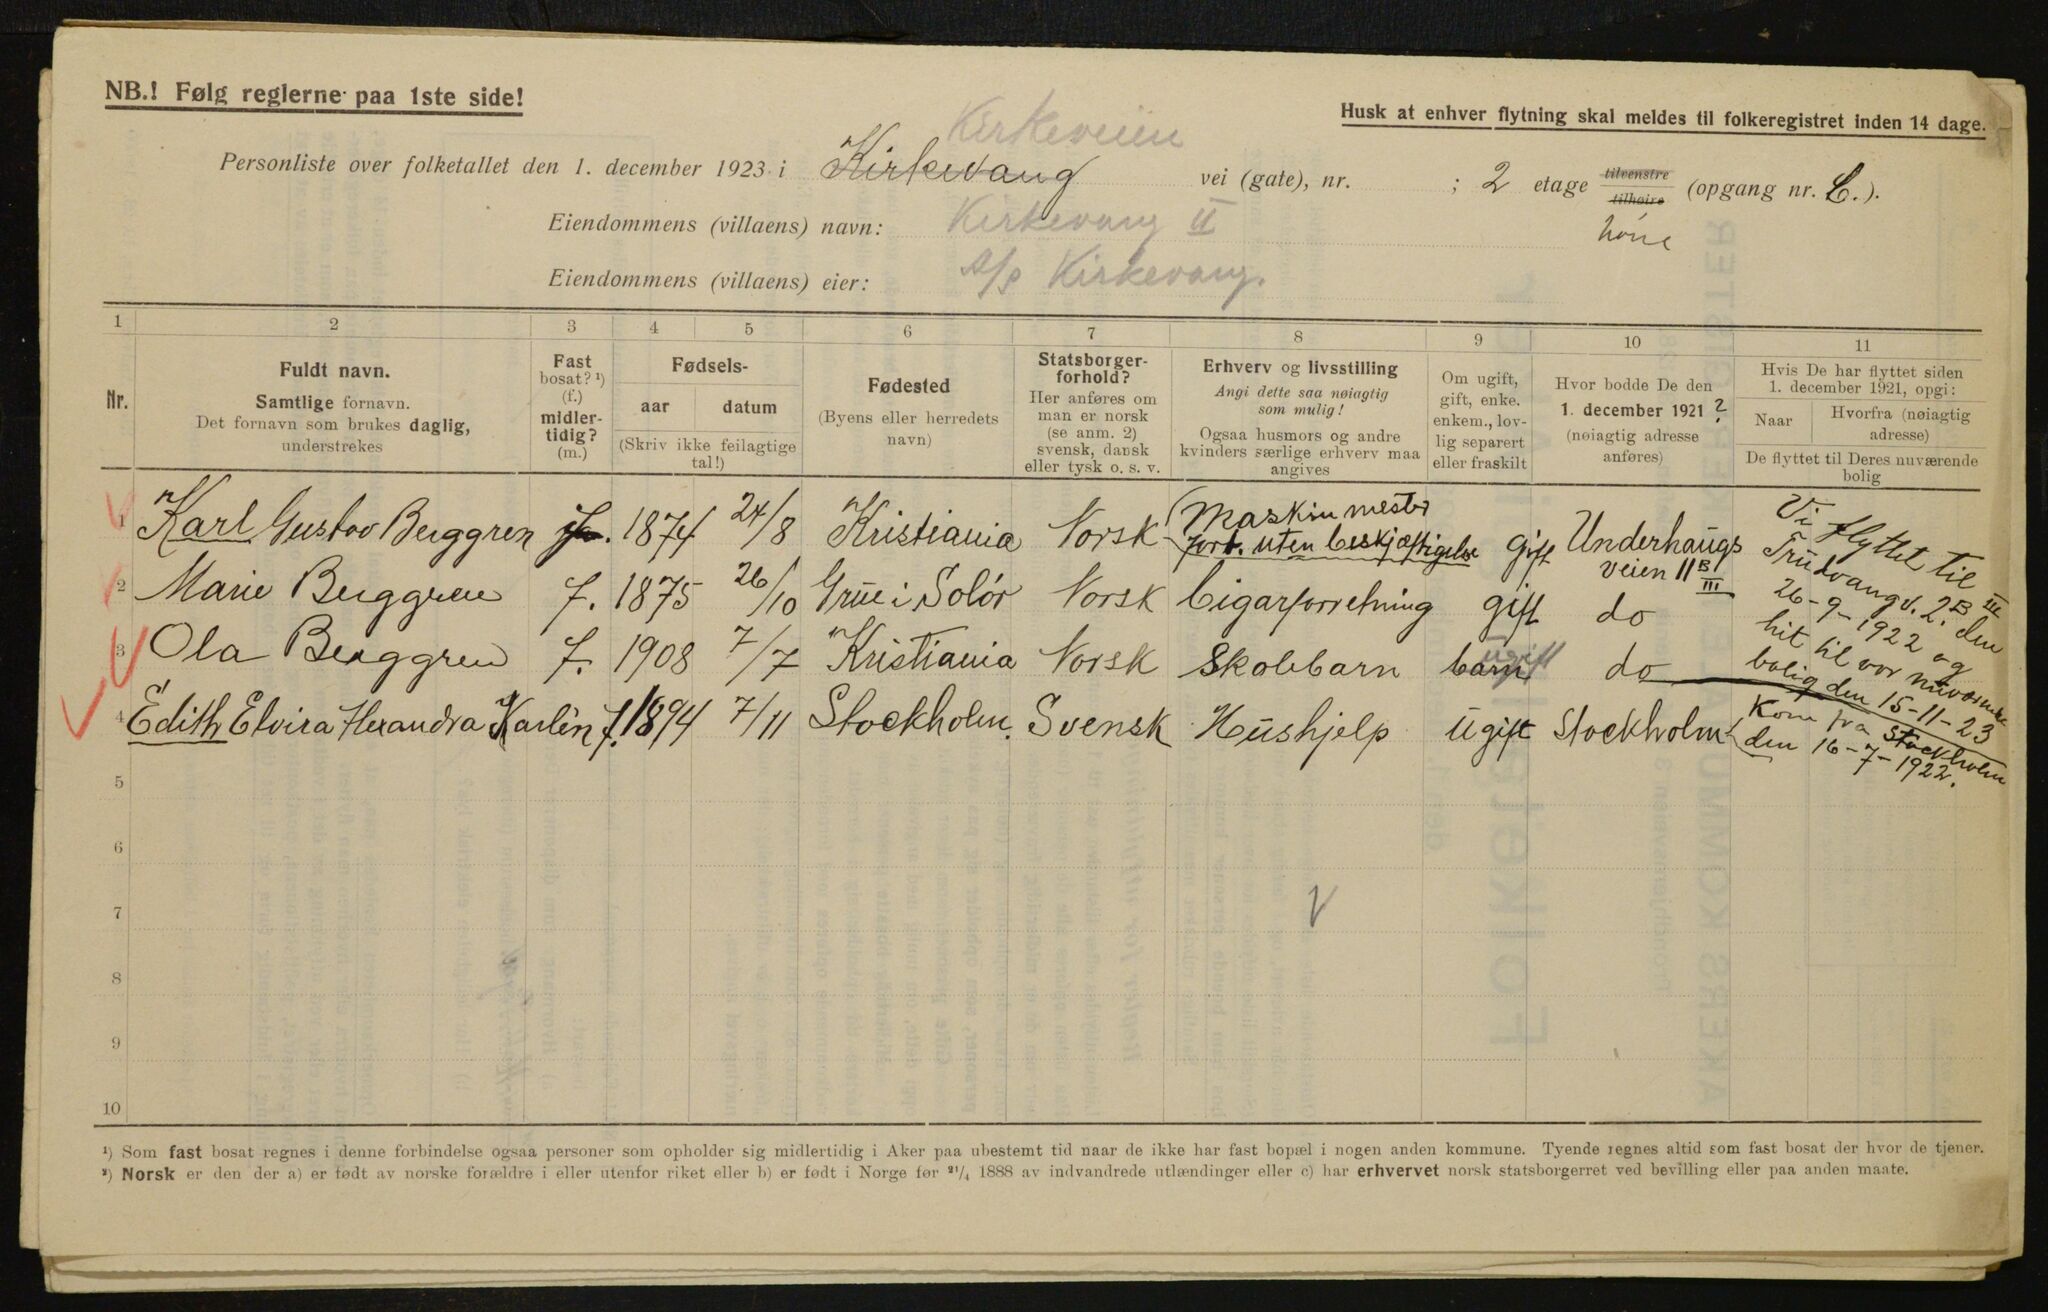 NB.! Følg reglerne paa 1ste side!
Husk at enhver flytning skal meldes til folkeregistret inden 14 dage.
Kirkeveien
Personliste over folketallet den 1. december 1923 i Kirkevang vei (gate), nr. ; 2 etage tilvenstre tilhøire (opgang nr. C.).
Eiendommens (villaens) navn: Kirkevang II
Eiendommens (villaens) eier: A/S Kirkevang.
1 2 3 4 5 6 7 8 9 10 11
Nr.
Fuldt navn.
Samtlige fornavn.
Det fornavn som brukes daglig,
understrekes
Fast
bosat? ¹)
(f.)
midler-
tidig?
(m.)
Fødsels-
aar datum
(Skriv ikke feilagtige
tal!)
Fødested
(Byens eller herredets
navn)
Statsborger-
forhold?
Her anføres om
man er norsk
(se anm. 2)
svensk, dansk
eller tysk o. s. v.
Erhverv og livsstilling
Angi dette saa nøiagtig
som mulig!
Ogsaa husmors og andre
kvinders særlige erhverv maa
angives
Om ugift,
gift, enke.
enkem., lov-
lig separert
eller fraskilt
Hvor bodde De den
1. december 1921?
(nøiagtig adresse
anføres)
Hvis De har flyttet siden
1. december 1921, opgi:
Naar Hvorfra (nøiagtig
adresse)
De flyttet til Deres nuværende
bolig
1 Karl Gustav Berggren f. 1874 24/8 Kristiania Norsk (Maskinmester
fort. uten beskjæftigelse gift Underhaugs
veien 11B III
2 Marie Berggren f. 1875 26/10 Grue i Solør Norsk Cigarforretning gift do
3 Ola Berggren f. 1908 7/7 Kristiania Norsk Skolebarn barn ugift do
Vi flyttet til
Trudvangv. 2B III den
26-9-1922 og
hit til vor nuværende
bolig den 15-11-23
4 Edith Elvira Alexandra Karlén f. 1894 7/11 Stockholm. Svensk Hushjelp Ugift Stockholm
Kom fra Stockholm
den 16-7-1922.
5
6
7
8
9
10
¹) Som fast bosat regnes i denne forbindelse ogsaa personer som opholder sig midlertidig i Aker paa ubestemt tid naar de ikke har fast bopæl i nogen anden kommune. Tyende regnes altid som fast bosat der hvor de tjener.
²) Norsk er den der a) er født av norske forældre i eller utenfor riket eller b) er født i Norge før ²¹/₄ 1888 av indvandrede utlændinger eller c) har erhvervet norsk statsborgerret ved bevilling eller paa anden maate.